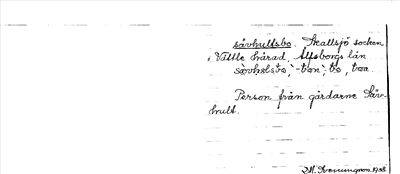 sävhultsbo. Skallsjö socken
Vättle härad, Älfsborgs län
sävhelsbo, -bon, bo, boa.
Person från gårdarne Säv-
hult.
1938